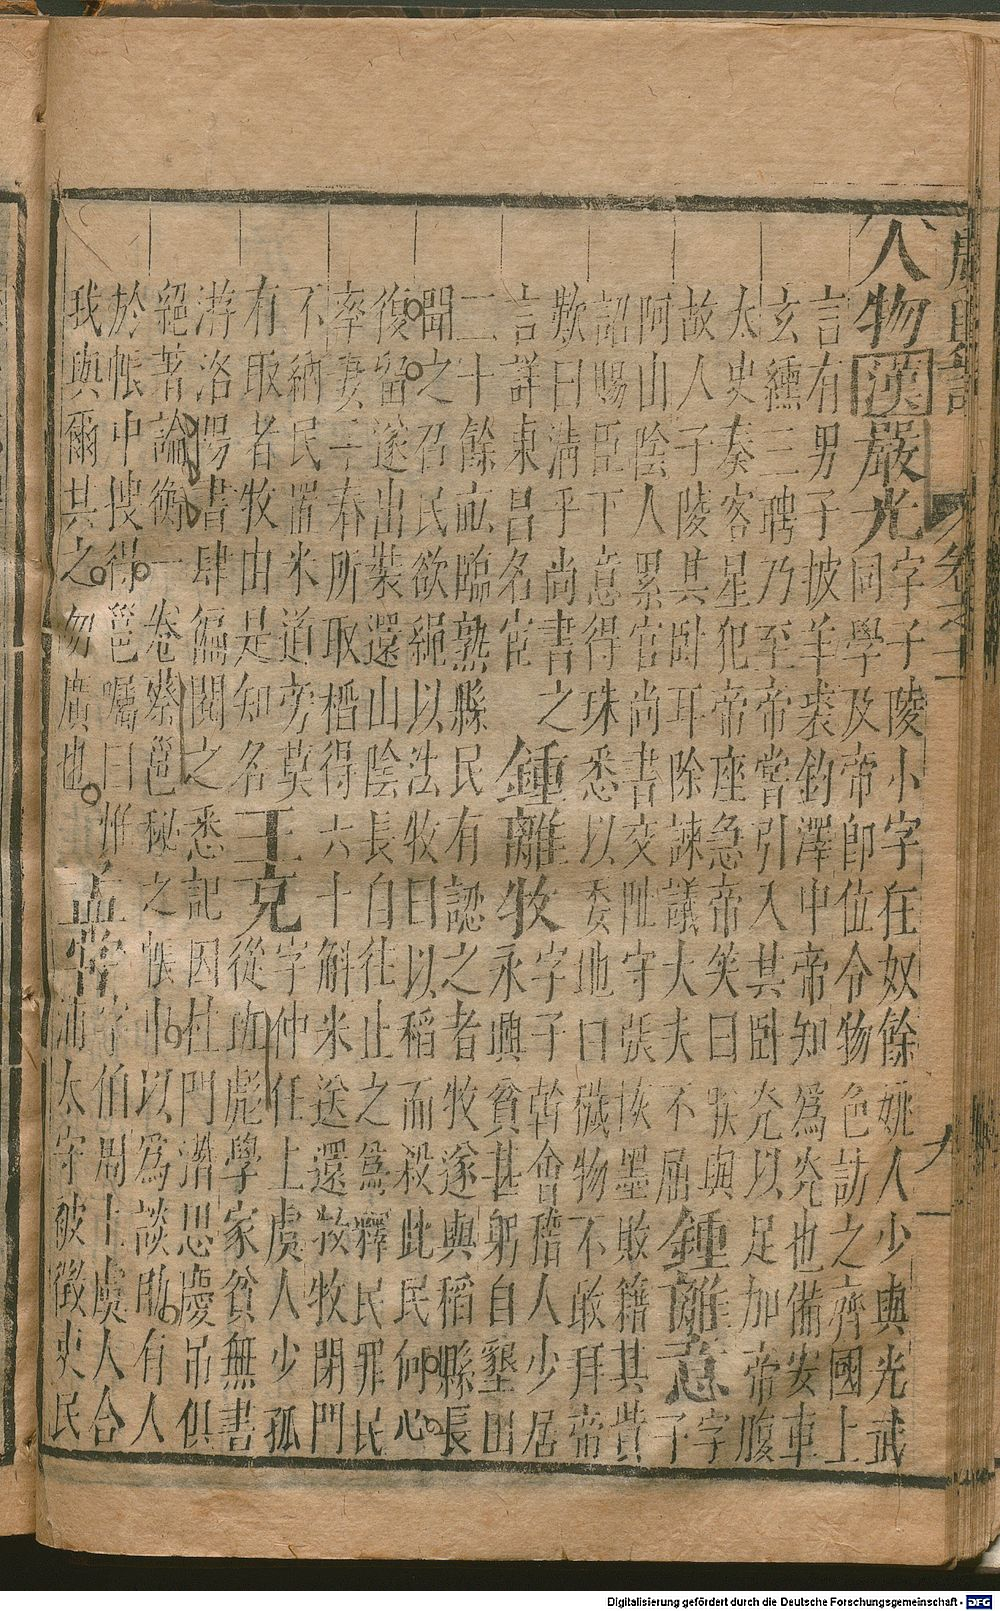 廣輿記 卷之
人物 漢 嚴光 字子陵小字在奴餘姚人少與光武
同學及帝即位令物色訪之齊國上
言有男子披羊裘釣澤中帝知為光也備安車
玄纁三聘乃至帝嘗引入其臥光以足加帝腹
太史奏客星犯帝座急帝笑曰朕與
故人子陵其臥耳除諫議大夫不屈 鍾離意 字子
阿山陰人累官尚書交阯守張恢墨敗籍其貲
詔賜臣下意得珠悉以委地曰穢物不敢拜帝
歎曰清乎尚書之
言詳東昌名宦 鍾離牧 字子幹會稽人少居
永興貧甚躬自墾田
二十餘畝臨熟縣民有認之者牧遂與稻縣長
聞之召民欲繩以法牧曰以稻而殺此民何心
復留遂出裝還山陰長自往止之為釋民罪民
率妻子舂所取稻得六十斛米送還牧牧閉門
不納民置米道旁莫
有取者牧由是知名 王充 字仲任上虞人少孤
從班彪學家貧無書
游洛陽書肆徧閱之悉記因杜門潛思慶吊俱
絕著論衡一卷蔡邕秘之帳中以為談助有人
於帳中搜得邕囑曰惟
我與爾共之勿廣也 孟嘗 字伯周上虞人合
浦太守被徵吏民
Digitalisierung gefördert durch die Deutsche Forschungsgemeinschaft - DFG